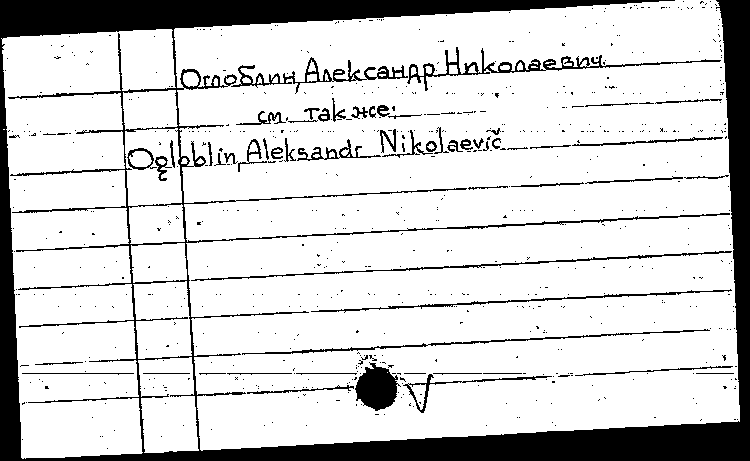 Оглоблин, Александр Николаевич.
см. также:
Ogloblin, Aleksandr Nikolaevič